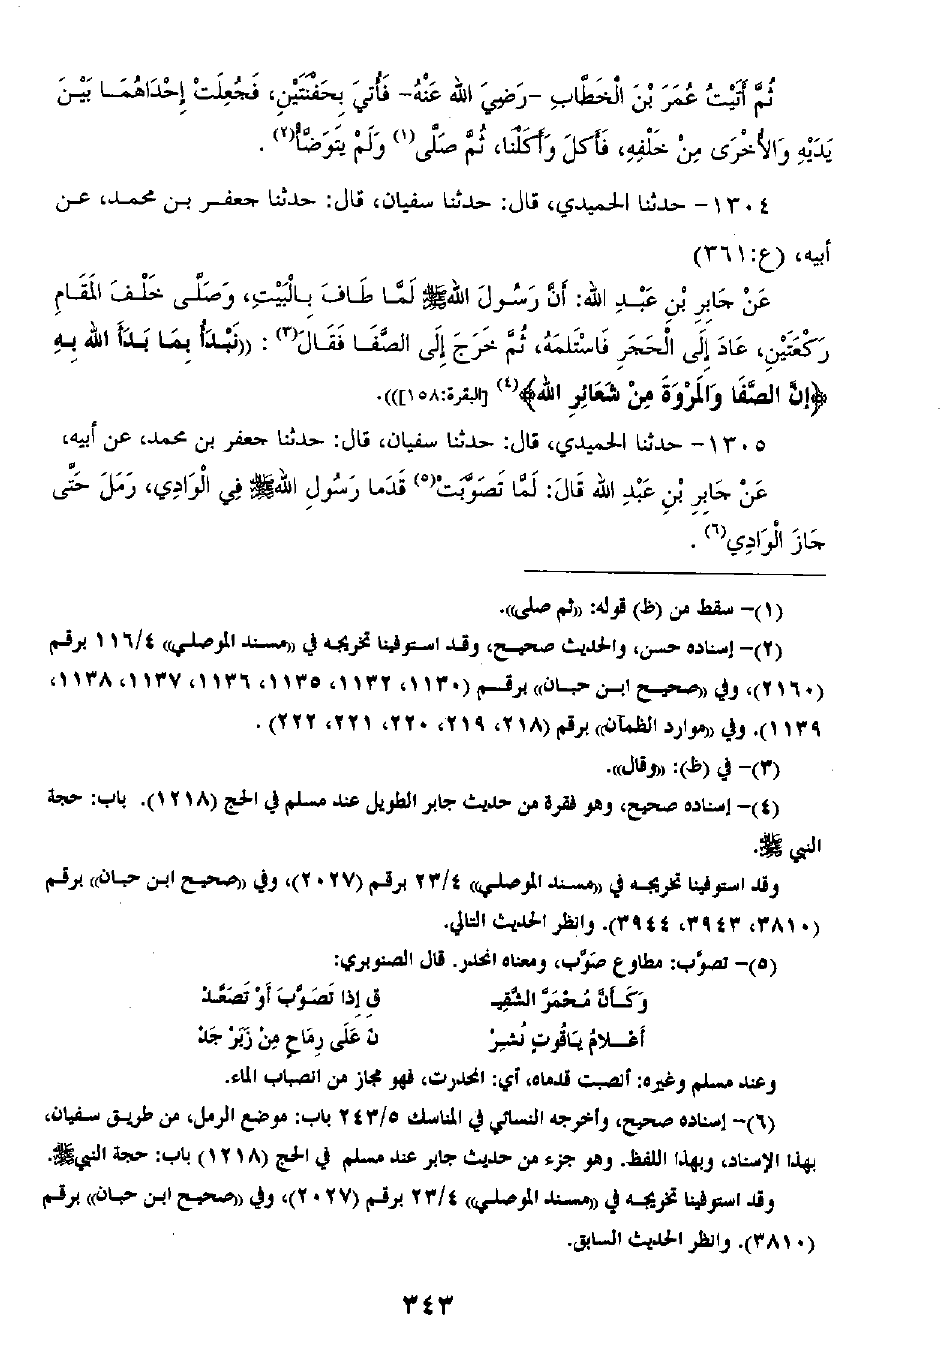 ثُمَّ أَتَيْتُ عُمَرَ بْنَ الْخَطَّابِ -رَضِيَ الله عَنْهُ- فَأُتِيَ بِجَفْنَتَيْنِ، فَجُعِلَتْ إِحْدَاهُمَا بَيْنَ
يَدَيْهِ وَالأُخْرَى مِنْ خَلْفِهِ، فَأَكَلَ وَأَكَلْنَا، ثُمَّ صَلَّى(١) وَلَمْ يَتَوَضَّأْ(٢).
١٣٠٤- حدثنا الحميدي، قال: حدثنا سفيان، قال: حدثنا جعفر بن محمد، عن
أبيه، (ع:٣٦١)
عَنْ جَابِرِ بْنِ عَبْدِ الله: أَنَّ رَسُولَ اللهﷺ لَمَّا طَافَ بِالْبَيْتِ، وَصَلَّى خَلْفَ الْمَقَامِ
رَكْعَتَيْنِ، عَادَ إِلَى الْحَجَرِ فَاسْتَلَمَهُ، ثُمَّ خَرَجَ إِلَى الصَّفَا فَقَالَ(٣): ((نَبْدَأُ بِمَا بَدَأَ الله بِهِ
﴿إِنَّ الصَّفَا وَالْمَرْوَةَ مِنْ شَعَائِرِ الله﴾(٤) [البقرة:١٥٨])).
١٣٠٥- حدثنا الحميدي، قال: حدثنا سفيان، قال: حدثنا جعفر بن محمد، عن أبيه،
عَنْ جَابِرِ بْنِ عَبْدِ الله قَالَ: لَمَّا تَصَوَّبَتْ(٥) قَدَمَا رَسُولِ اللهﷺ فِي الْوَادِي، رَمَلَ حَتَّى
جَازَ الْوَادِي(٦).
(١)- سقط من (ظ) قوله: ((ثم صلى)).
(٢)- إسناده حسن، والحديث صحيح، وقد استوفينا تخريجه في ((مسند الموصلي)) ١١٦/٤ برقم
(٢١٦٠)، وفي ((صحيح ابن حبان)) برقم (١١٣٠، ١١٣٢، ١١٣٥، ١١٣٦، ١١٣٧، ١١٣٨،
١١٣٩). وفي ((موارد الظمآن)) برقم (٢١٨، ٢١٩، ٢٢٠، ٢٢١، ٢٢٢).
(٣)- في (ظ): ((وقال)).
(٤)- إسناده صحيح، وهو فقرة من حديث جابر الطويل عند مسلم في الحج (١٢١٨). باب: حجة
النبي ﷺ.
وقد استوفينا تخريجه في ((مسند الموصلي)) ٢٣/٤ برقم (٢٠٢٧)، وفي ((صحيح ابن حبان)) برقم
(٣٨١٠، ٣٩٤٣، ٣٩٤٤). وانظر الحديث التالي.
(٥)- تصوَّب: مطاوع صَوَّب، ومعناه انحدر. قال الصنوبري:
وَكَأَنَّ مُحْمَرَّ الشَّقِيـ ـقِ إِذَا تَصَوَّبَ أَوْ تَصَعَّدْ
أَعْلامُ يَاقُوتٍ نُشِرْ نَ عَلَى رِمَاحٍ مِنْ زَبَرْجَدْ
وعند مسلم وغيره: أنصبت قدماه، أي: انحدرت، فهو مجاز من انصباب الماء.
(٦)- إسناده صحيح، وأخرجه النسائي في المناسك ٢٤٣/٥ باب: موضع الرمل، من طريق سفيان،
بهذا الإسناد، وبهذا اللفظ. وهو جزء من حديث جابر عند مسلم في الحج (١٢١٨) باب: حجة النبيﷺ.
وقد استوفينا تخريجه في ((مسند الموصلي)) ٢٣/٤ برقم (٢٠٢٧)، وفي ((صحيح ابن حبان)) برقم
(٣٨١٠). وانظر الحديث السابق.
٣٤٣